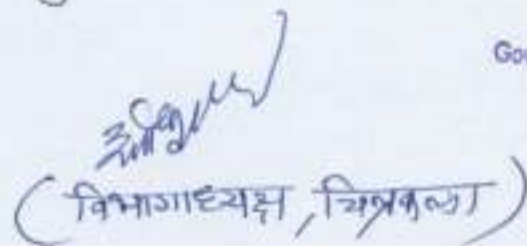 Go
(विभागाध्यक्ष, चित्रकला)